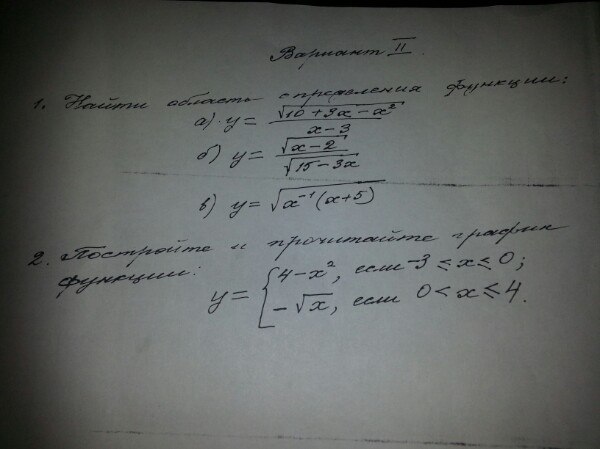 Вариант II.
1. Найти область определения функции:
а) y = √(10 + 3x - x²) / (x - 3)
б) y = √(x - 2) / √(15 - 3x)
в) y = √(x⁻¹(x+5))
2. Постройте и прочитайте график
функции:
y = { 4 - x², если -3 ≤ x ≤ 0;
-√x, если 0 < x ≤ 4.